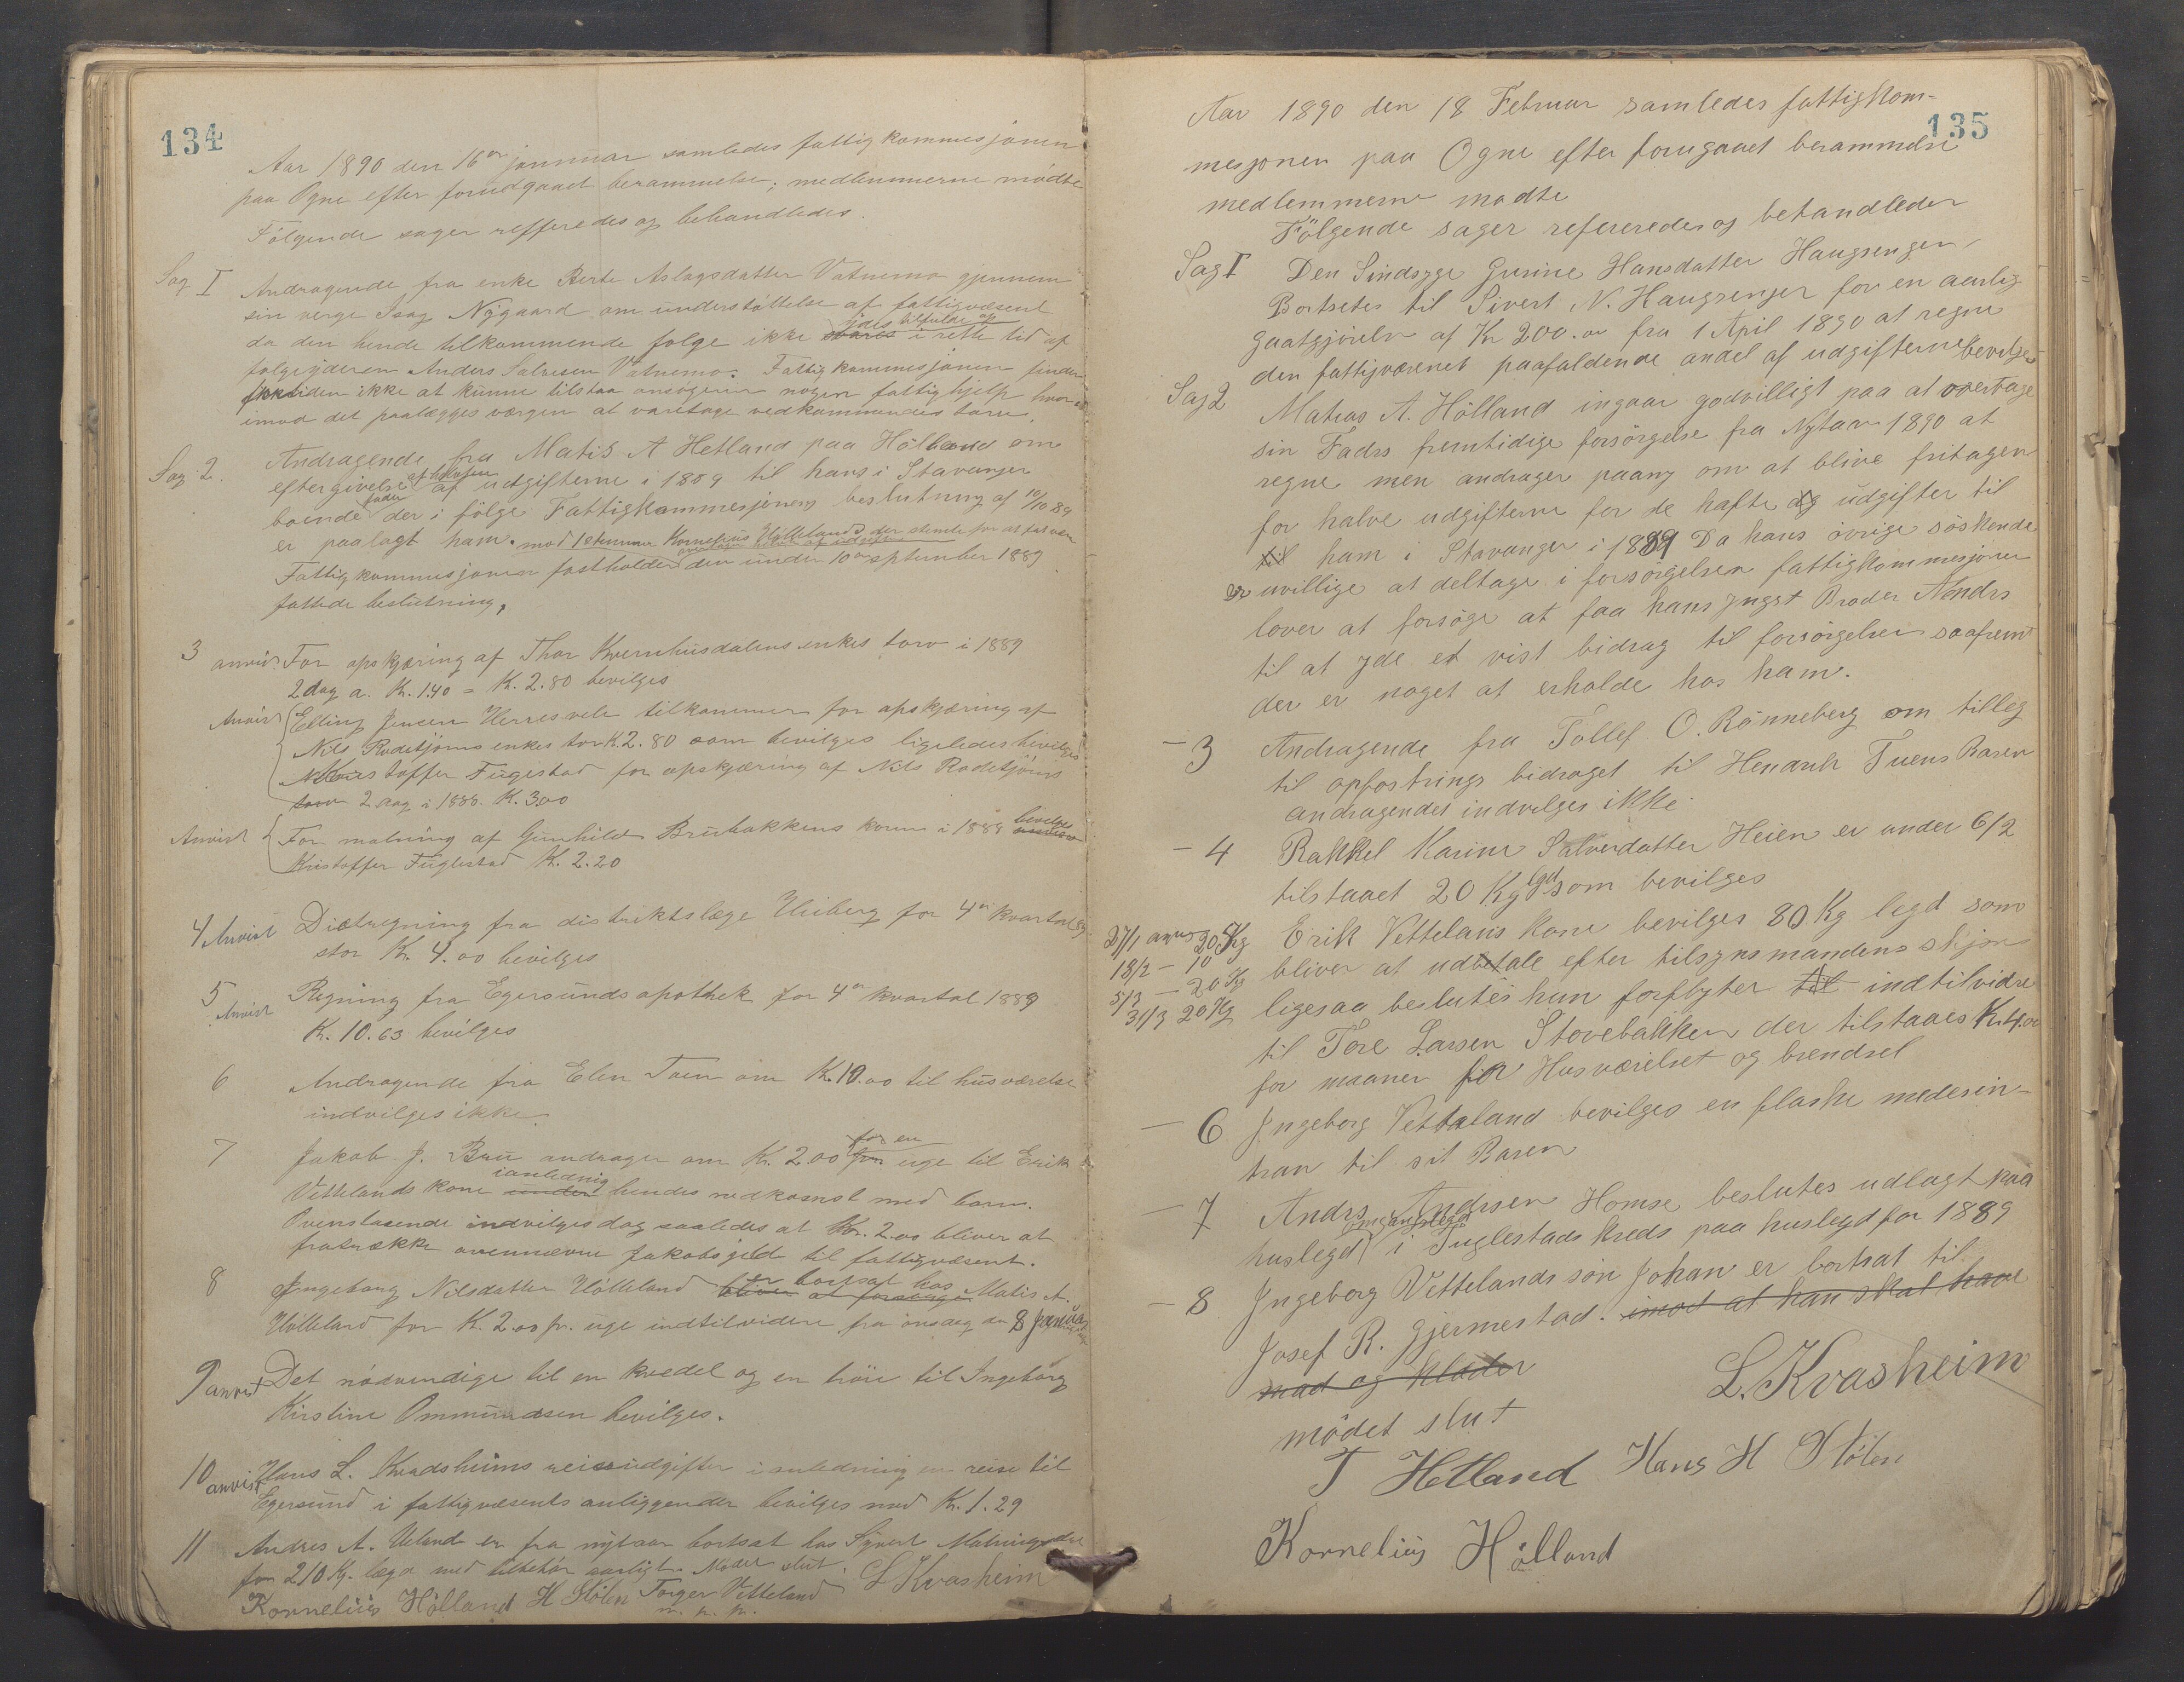 134
Aar 1890 den 16de januuar samledes fattigkommesjonen
paa Ogne efter forudgaaet berammelse; medlemmerne mödte
Fölgende sager refferedes og behandledes.
Sag I Andragende fra enke Berte Aslagsdatter Vatnemo gjennem
sin verge Isag Nÿgaard om understöttelse af fattigvæsent
da den hende tilkommende folge ikke svares i rette tid af
folgeyderen Anders Salvesen Vatnemo. Fattigkommesjonen finder
ikke at kunne tilstaa ansögeren nogen fattighjelp hvor
imod det paalægges værgen at varetage vedkommendes tarv.
Sag 2. Andragende fra Matis A Hetland paa Hölland om
eftergivelse af halvten af udgifterne i 1889 til hans i Stavanger
boende fader der i fölge Fattigkommesjonens beslutning af 10/10 89
er paalagt ham. mod 1 stemme Kornelius Höllands
Fattigkommesjonen fastholder den under 10de september 1889
fattede beslutning,
3 anvist For opskjæring af Thor Kvernhusdalens enkes torv i 1889
2 dag a. Kr. 1.40 = K. 2.80 bevilges
Anvist Elling Jensen Herresvele tilkommer for opskjæring af
Nils Rodetjörns enkes torv K. 2.80 som bevilges ligeledes bevilges
Kristoffer Fugestad for opskjæring af Nils Rodetjörns
torv 2 dag i 1886. K. 3.00
Anvist For malning af Gunhild Brubakkens korn i 1888 bevilges
Kristoffer Fuglestad K. 2.20
4 Anvist Diætregning fra distriktslæge Uleberg for 4de kvartal 89
stor K. 4.00 bevilges
5 Anvist Regning fra Egersunds apothek for 4de kvartal 1889
K. 10.63 bevilges
6 Andragende fra Elen Tuen om K. 10.00 til husværelse
indvilges ikke.
7 Jakob J. Bru andrager om K. 2.00 for en uge til Erik
Vettelands kone ianlednig hendes nedkomst med barn.
Ovenstaaende indvilges dog saaledes at Kr. 2.00 bliver at
fratrække ovennævnte Jakobs gjeld til fattigvæsent.
8 Ingeborg Nilsdatter Hölleland er bortsat hos Matis A.
Hölleland for K. 2.00 pr. uge indtilvidere fra onsdag den 8 januar
9 anvist Det nödvendige til en kvedel og en tröie til Ingeborg
Kirstine Ommundsen bevilges.
10 anvist Hans L. Kvadsheims reiseudgifter i anledning en reise til
Egersund i fattigvæsents anliggender bevilges med Kr. 1.29
11 Andres A. Ueland er fra nytaar bortsat hos Sÿvert Matningsdal
for 210 Kg. legd med tilbehör aarligt. Mödet slut.
L Kvasheim
Kornelius Hölland H Stölen Torger Vetteland
m. p. p.
135
Aar 1890 den 18 Februar samledes fattigkom-
mesjonen paa Ogne efter forugaaet berammelse
medlemmerne mødte
Fölgende sager refereredes og behandledes
Sag I Den Sindsyge Gurine Hansdatter Haugsengen,
Bortsetes til Sivert N. Haugsengen for en aarlig
Gaatgjörelse af Kr 200.00 fra 1 April 1890 at regne
den fattigværenet paafaldende andel af udgifterne bevilges
Sag 2 Matias A. Hölland ingaar godvilligt paa at overtage
sin Fadrs fremtidige forsörgelse fra Nytaar 1890 at
regne men andrager paany om at blive fritagen
for halve udgifterne for de hafte udgifter til
til ham i Stavanger i 1889 Da hans övrige söskende
er uvillige at deltage i forsörgelsen fattigkommesjonen
lover at forsöge at faa hans yngst Broder Andrs
til at yde et vist bidrag til forsörgelsen saafremt
der er noget at erholde hos ham.
— 3 Andragende fra Tollef O. Rönneberg om tilleg
til opfostrings bidraget til Henarik Tuens Baren
andragendet indvilges ikke
— 4 Rakkel Karine Salversdatter Heien er under 6/2
tilstaaet 20 Kg lgd som bevilges
27/1 anvist 20 Kg Erik Vettelans kone bevilges 80 Kg legd som
18/2 — 10 bliver at udbetale efter tilsynsmandens skjön
5/3 — 20 Kg ligesaa beslutes hun forflyter til indtilvidre
31/3 20 Kg til Tore Larsen Stovebakken der tilstaaes Kr 4.00
for maanen for Husværelset og brendsel
— 6 Ingeborg Vettaland bevilges en flaske medesin-
tran til sit Baren
— 7 Andrs Andrsen Homse beslutes udlagt paa
huslegd omgangslegd i Fuglestads kreds paa huslegd for 1889
— 8 Ingeborg Vettelands sön Johan er bortsat til
Josef R. Gjermestad. imod at han skal have
mad og klæder
mödet slut
L. Kvasheim
T Hetland Hans H Stölen
Kornelius Hölland